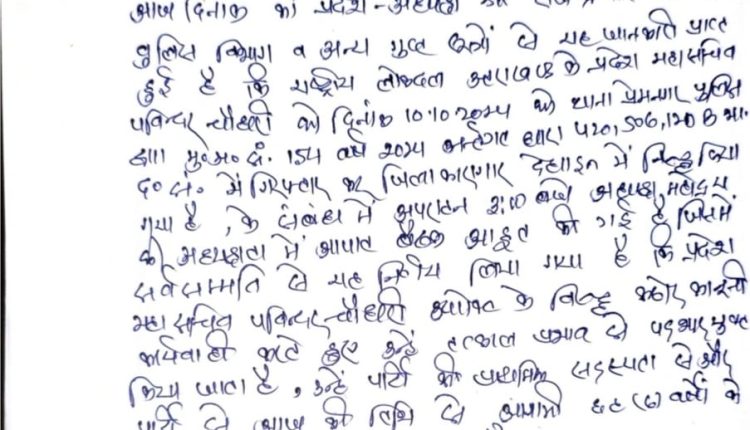 आज दिनांक को प्रदेश-अध्यक्ष
पुलिस विभाग व अन्य गुप्त सूत्रों से यह जानकारी प्राप्त
हुई है कि राष्ट्रीय लोकदल उत्तराखण्ड के प्रदेश महासचिव
पविन्दर चौधरी को दिनांक 10.10.2024 को थाना प्रेमनगर पुलिस
द्वारा मु०अ० सं. 154 वर्ष 2024 अर्न्तगत धारा 420, 506, 120 B भा.
द० सं. में गिरफ्तार कर जिला कारागार देहरादून में निरूद्ध किया
गया है, के संबंध में अपरान्ह 2:00 बजे अध्यक्ष महोदय
की अध्यक्षता में आपात बैठक आहूत की गई है जिसमें
सर्वसम्मति से यह निर्णय लिया गया है कि प्रदेश
महासचिव पविन्दर चौधरी उपरोक्त के विरूद्ध कठोर कानूनी
कार्यवाही करते हुए उन्हें तत्काल प्रभाव से पदभार मुक्त
किया जाता है, उन्हें पार्टी की प्राथमिक सदस्यता से और
पार्टी से आज की तिथि से आगामी छह (6) वर्षों के